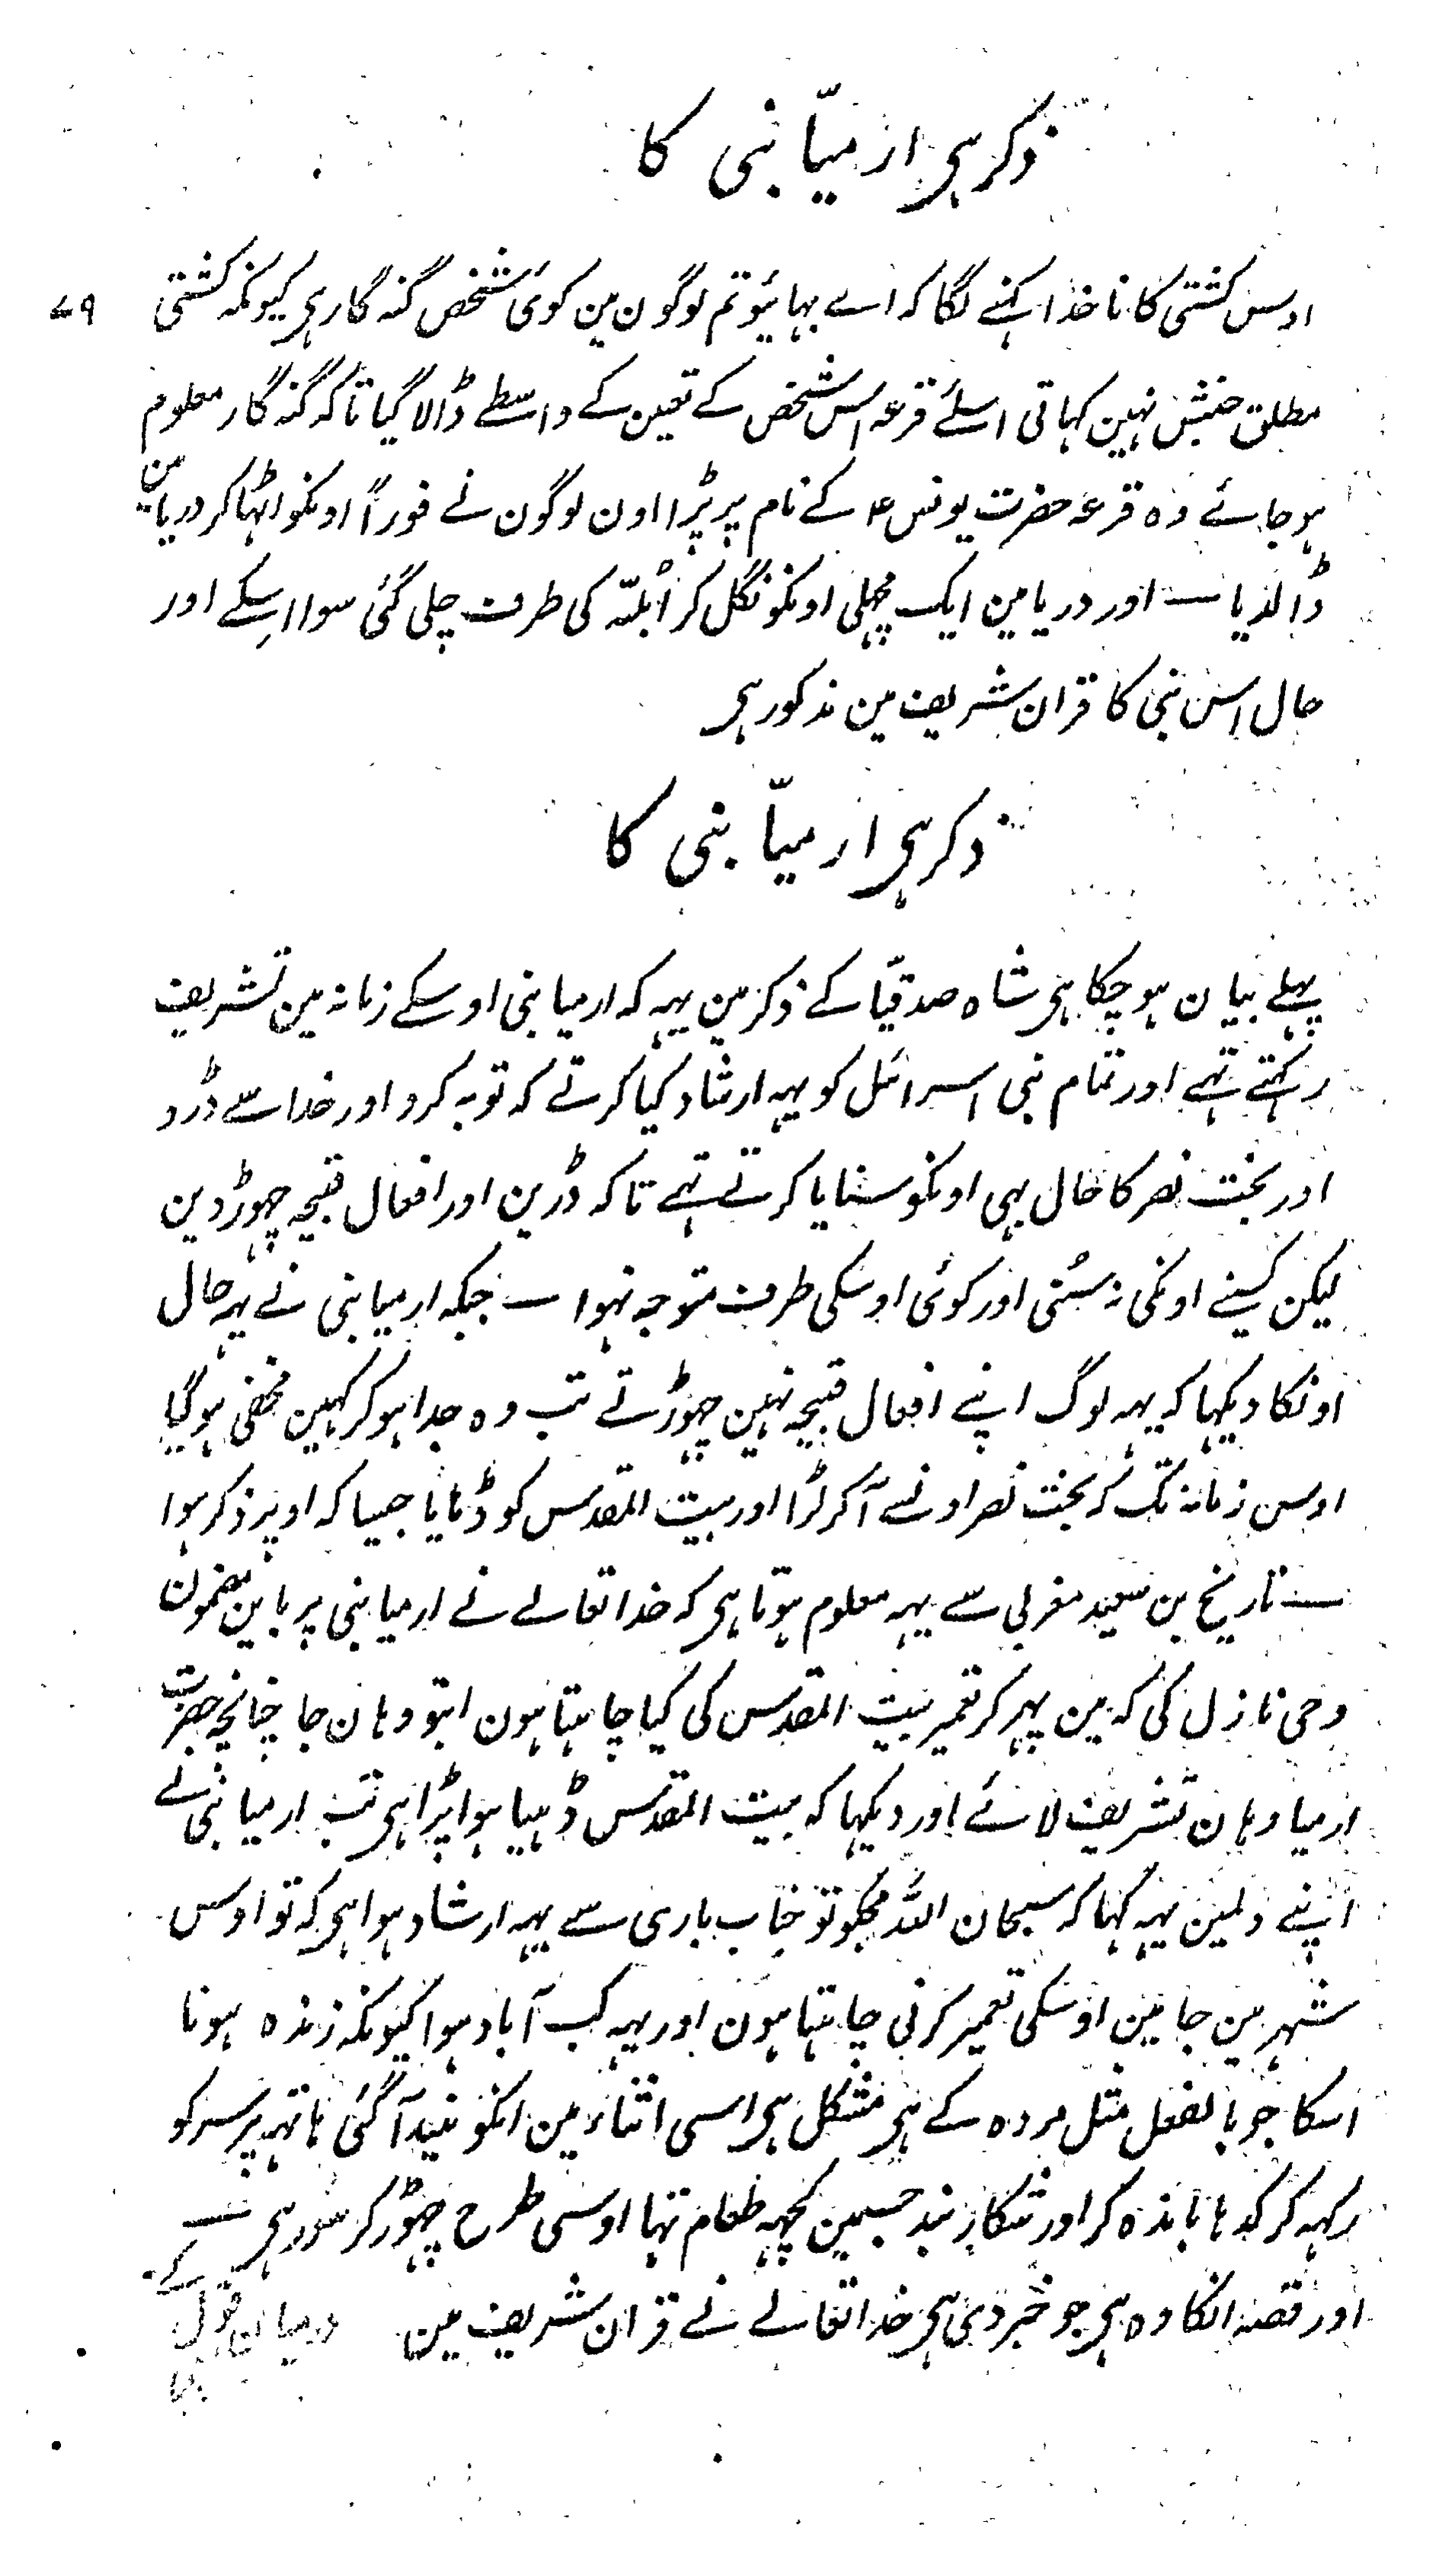 ذکر ہی ارمیّا نبی کا
۷۹
اوس کشتی کا ناخدا کہنے لگا کہ اے بہائیو تم لوگون مین کوئی شخص گنہ گار ہی کیونکہ کشتی
مطلق جنبش نہین کہاتی اسلئے قرعہ اس شخص کے تعین کے واسطے ڈالا گیا تاکہ گنہ گار معلوم
ہو جائے وہ قرعہ حضرت یونس ع کے نام پر پڑا اون لوگون نے فوراً اونکو اٹہا کر دریا مین
ڈالدیا ــ اور دریا مین ایک مچہلی اونکو نگل کر اُبلّہ کی طرف چلی گئی سوا اسِکے اور
حال اس نبی کا قران شریف مین مذکور ہی
ذکر ہی ارمیّا نبی کا
پہلے بیان ہو چکا ہی شاہ صدقیّا کے ذکر مین یہہ کہ ارمیا نبی اوسکے زمانہ مین تشریف
رکہتے تہے اور تمام بنی اسرائل کو یہہ ارشاد کیا کرتے کہ توبہ کرو اور خدا سے ڈرو
اور بخت نصر کا حال بہی اونکو سنایا کرتے تہے تاکہ ڈرین اور افعال قبیحہ چہوڑ دین
لیکن کسینے اونکی نہ سُنی اور کوئی اوسکی طرف متوجہ نہوا ــ جبکہ ارمیا نبی نے یہ حال
اونکا دیکہا کہ یہہ لوگ اپنے افعال قبیحہ نہین چہوڑتے تب وہ جدا ہو کر کہین مخفی ہو گیا
اوس زمانہ تک کہ بخت نصر اونسے آ کر لڑا اور بیت المقدس کو ڈہایا جیسا کہ اوپر ذکر ہوا
ــ تاریخ بن سعید مغربی سے یہہ معلوم ہوتا ہی کہ خدا تعالے نے ارمیا نبی پر باین مضمون
وحی نازل کی کہ مین پہر کر تعمیر بیت المقدس کی کیا چاہتا ہون ابتو وہان جا چنانچہ حضرت
ارمیا وہان تشریف لائے اور دیکہا کہ بیت المقدس ڈہیا ہوا پڑا ہی تب ارمیا نبی نے
اپنے دلمین یہہ کہا کہ سبحان اللہ مجکو تو جناب باری سے یہہ ارشاد ہوا ہی کہ تو اوس
شہر مین جا مین اوسکی تعمیر کرنی چاہتا ہون اور یہہ کب آباد ہوا کیونکہ زندہ ہونا
اسکا جو بالفعل مثل مردہ کے ہی مشکل ہی اسی اثناء مین انکو نیند آ گئی ہاتہہ پر سر کو
رکہہ کر گدہا باندہ کر اور شکار بند جسمین کچہہ طعام تہا اوسی طرح چہوڑ کر سو رہی ــ
اور قصہ انکا وہ ہی جو خبر دی ہی خدا تعالے نے قران شریف مین درمیان قول